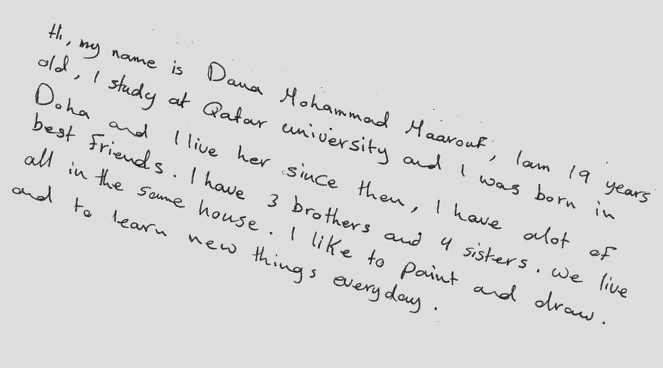 Hi, my name is Dana Mohammad Maarouf, Iam 19 years
old, I study at Qatar university and I was born in
Doha and I live her since then, I have alot of
best friends. I have 3 brothers and 4 sisters. We live
all in the same house. I like to paint and draw.
and to learn new things everyday.